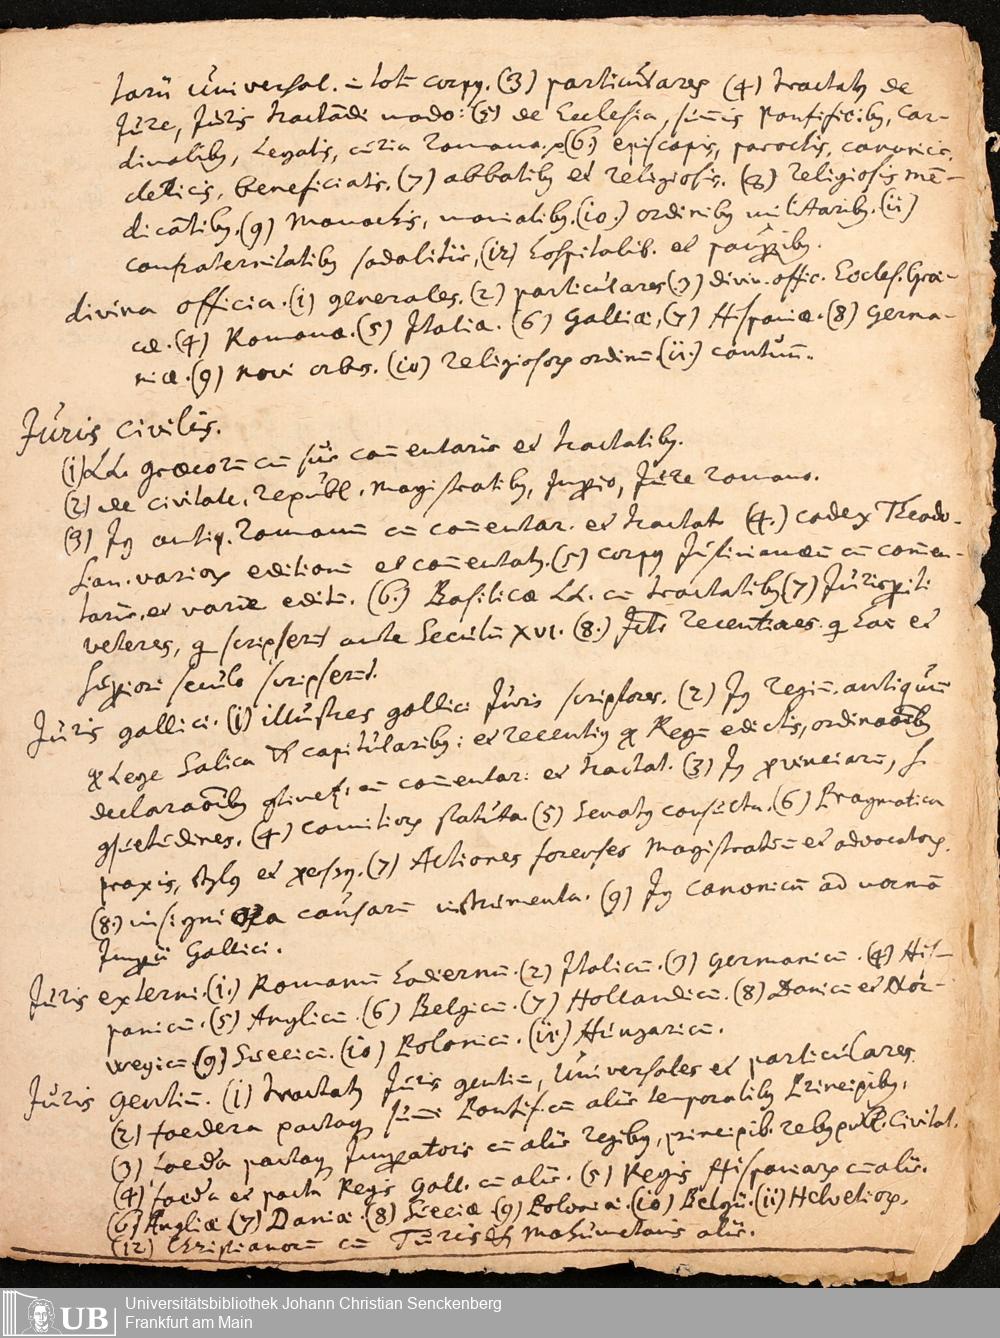 tarii Universal. in totū corpꝰ. (3) particulares (4) tractatꝰ de
Jure, Juris tractādi modo: (5) de Ecclesia, sūmis Pontificibꝰ, Car-
dinalibꝰ, Legatis, curia Romana. (6) episcopis, parochis, canonicis,
clericis, beneficiatis. (7) abbatibꝰ et religiosis. (8) religiosis mē-
dicātibꝰ. (9) Monachis, monialibꝰ. (10.) ordinibꝰ militaribꝰ. (11)
confraternitatibꝰ sodalitiis, (12) hospitalib. et pauperibꝰ.
divina officia. (1) generales. (2) particulares (3) divin. offic. Eccles. Græ-
cæ. (4) Romanæ. (5) Italiæ. (6) Galliæ, (7) Hispaniæ. (8) Germa-
niæ. (9) novi orbis. (10) religiosorꝝ ordinū. (11.) cantuū.
Juris civilis.
(1) LL. græcorū cū suis comentariis et tractatibꝰ.
(2) de civitate, Republ. Magistratibꝰ, Imperio, Jure romano.
(3) Jꝰ antiq. Romanū cū comentar. et tractat. (4.) codex Theodo-
sian. variorꝝ editionū et comentatꝰ. (5) corpꝰ Justinianeū cū comen-
tariis, et variæ editū. (6.) Basilicæ LL. cū tractatibꝰ (7) Jurisperiti
veteres, qui scripserūt ante Seculū XVI. (8.) Jcti recentiores qui hoc et
superiori seculo scripserūt.
Juris gallici. (1) illustres gallici Juris scriptores. (2) Jꝰ regiū. antiquum
Lege Salica et capitularibꝰ: et recentiꝰ Regū edictis, ordinationibꝰ
declarationibꝰ cū comentar: et tractat. (3) Jꝰ provinciarū, s.
consuetudines. (4) comitiorꝝ statuta. (5) Senatꝰ consulta. (6) Pragmatica
praxis, stylꝰ et (7) Actiones forenses Magistratuū et advocatorꝝ.
(8.) insigniora causarū instrumenta. (9) Jꝰ Canonicū ad normā
Imperii Gallici.
Juris externi. (1.) Romanū hodiernū. (2) Italicū. (3) Germanicū. (4) His-
panicū. (5) Anglicū. (6) Belgicū. (7) Hollandicū. (8) Danicū et Nor-
wegicū (9) Suecicū. (10) Polonicū. (11) Hungaricū.
Juris gentiū. (1) tractatꝰ Juris gentiū, Universales et particulares
(2) foedera sūmi Pontif. cū aliis temporalibꝰ Principibꝰ,
(3) foedera Imperatoris cū aliis regibꝰ, principib. rebꝰpubl. Civitat.
(4) foedera et pacta Regis Gall. cū aliis. (5) Regis Hispaniarꝝ cū aliis.
(6) Angliæ (7) Daniæ. (8) Sueciæ. (9) Poloniæ. (10) Belgii. (11) Helvetiorꝝ.
(12) Christianorū cū Turcis et Mahumetanis aliis.
UB
Universitätsbibliothek Johann Christian Senckenberg
Frankfurt am Main